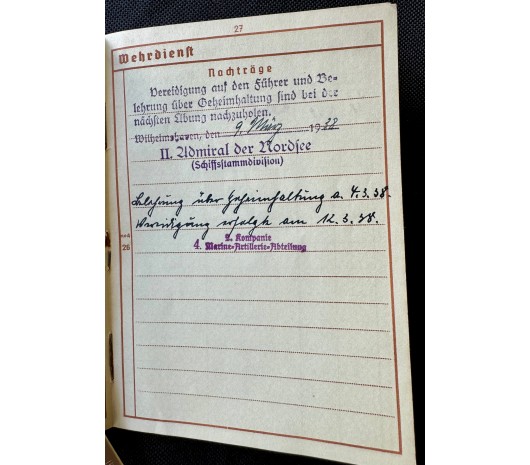 27
Wehrdienst
Nachträge
Vereidigung auf den Führer und Be-
lehrung über Geheimhaltung sind bei der
nächsten Übung nachzuholen.
Wilhelmshaven, den 9. März 1938
II. Admiral der Nordsee
(Schiffsstammdivision)
Belehrung über Geheimhaltung a. 4.3.38.
Vereidigung erfolgte am 12.3.38.
noch
26
2. Kompanie
4. Marine-Artillerie-Abteilung